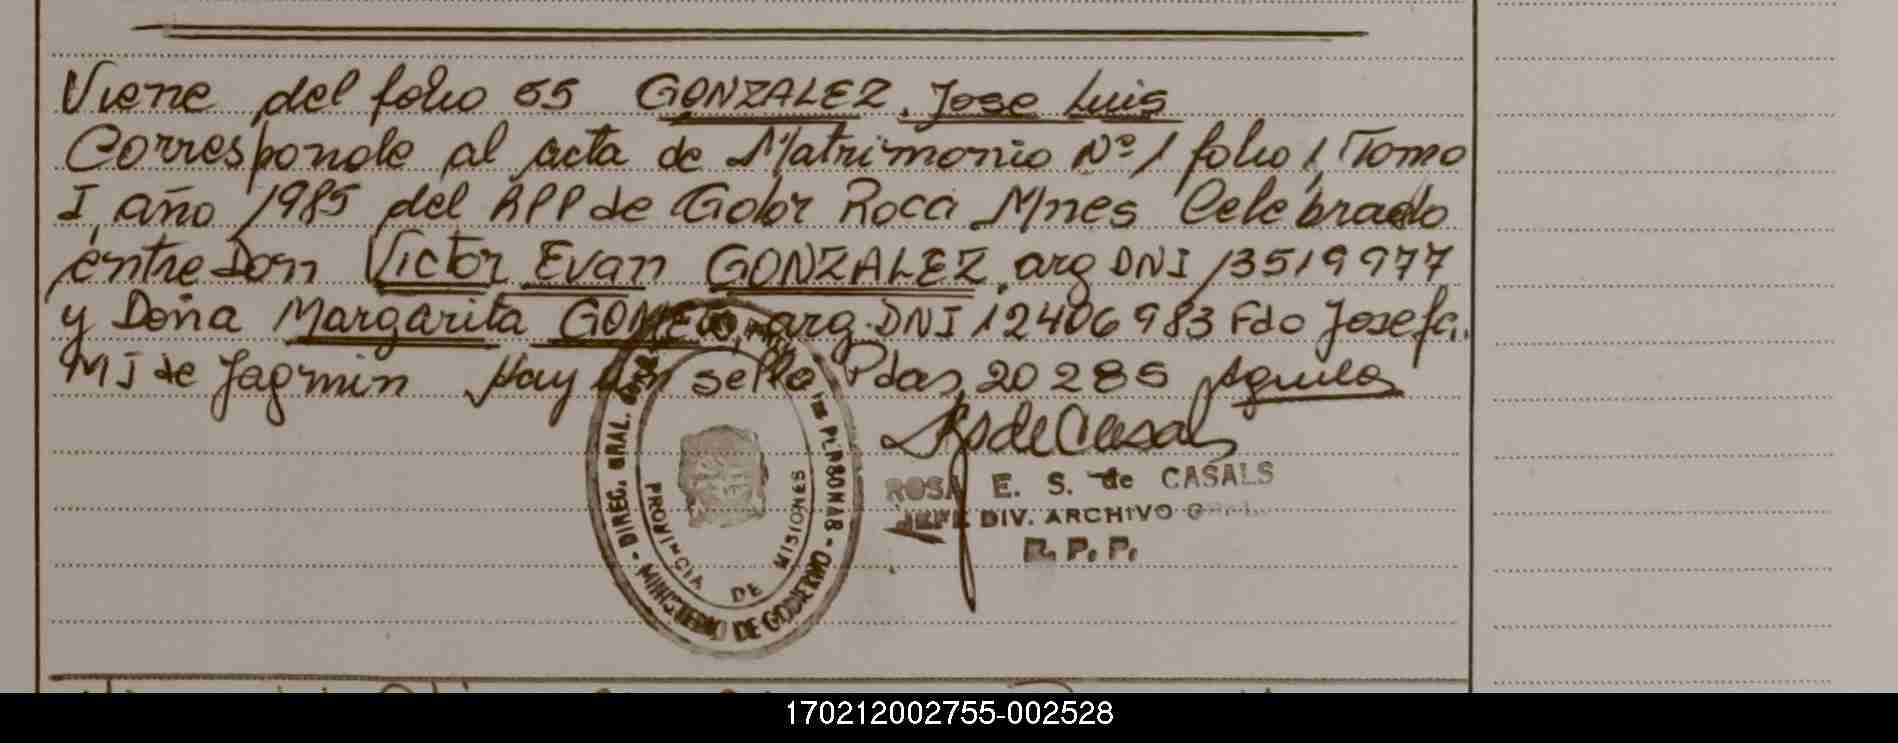 Viene del folio 55 GONZALEZ, Jose Luis
Corresponde al acta de Matrimonio Nº 1 folio 1, Tomo
I año 1985 del RPP de Gdor Roca Mnes Celebrado
entre Don Victor Evan GONZALEZ, arg DNI 13519977
y Doña Margarita GOMEZ, arg. DNI 12406983 Fdo Josefa
MJ de Jagmin Hay un sello Pdas, 20 2 85 Aguila
ROSA E. S. de CASALS
JEFE DIV. ARCHIVO GRAL.
R. P. P.
DIREC. GRAL. DE PERSONAS - MINISTERIO DE GOBIERNO -
PROVINCIA DE MISIONES
170212002755-002528